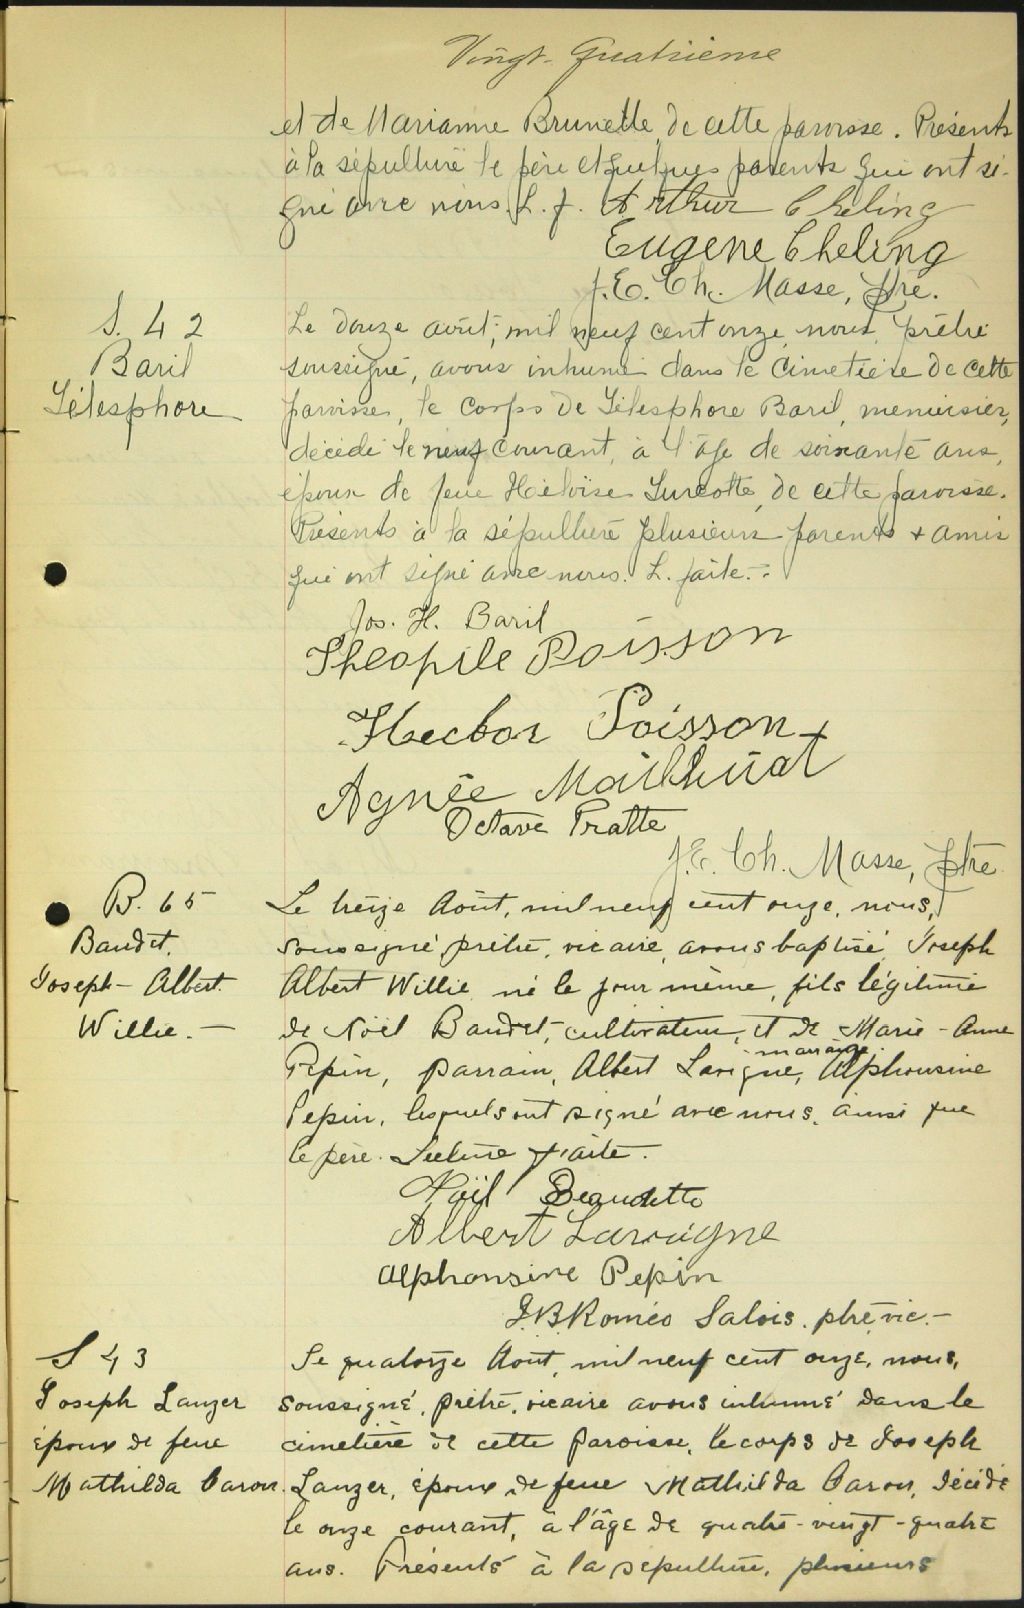 Vingt-Quatrième
et de Marianne Brunelle, de cette paroisse. Présents
à la sépulture le père et quelques parents qui ont si-
gné avec nous. L. f. Arthur Cheling
Eugene Cheling
J. E. Ch. Masse, ptre.
S. 42
Baril
Télesphore
Le douze août, mil neuf cent onze, nous, prêtre
soussigné, avons inhumé dans le cimetière de cette
paroisse, le corps de Télesphore Baril, menuisier,
décédé le neuf courant, à l'âge de soixante ans,
époux de feue Héloïse Turcotte, de cette paroisse.
Présents à la sépulture plusieurs parents + amis
qui ont signé avec nous. L. faite.-
Jos. H. Baril
Theophile Poisson
Hector Poisson
Agnée Mailhiiot
Octave Pratte
J. E. Ch. Masse, ptre
B. 65
Baudet.
Joseph-Albert
Willie.—
Le treize Août, mil neuf cent onze, nous,
soussigné prêtre, vicaire, avons baptisé Joseph
Albert Willie né le jour même, fils légitime
de Noël Baudet, cultivateur, et de Marie-Anne
Pepin, parrain, Albert Lavigne, marraine Alphonsine
Pepin, lesquels ont signé avec nous, ainsi que
le père. Lecture faite.
Noël Beaudette
Albert Lavigne
Alphonsine Pepin
J B Roméo Salois. ptre vic.—
S 43
Joseph Lanzer
époux de feue
Mathilda Caron.
Le quatorze Août, mil neuf cent onze, nous,
soussigné, prêtre, vicaire avons inhumé dans le
cimetière de cette paroisse, le corps de Joseph
Lanzer, époux de feue Mathilda Caron, décédé
le onze courant, à l'âge de quatre-vingt-quatre
ans. Présents à la sépulture, plusieurs